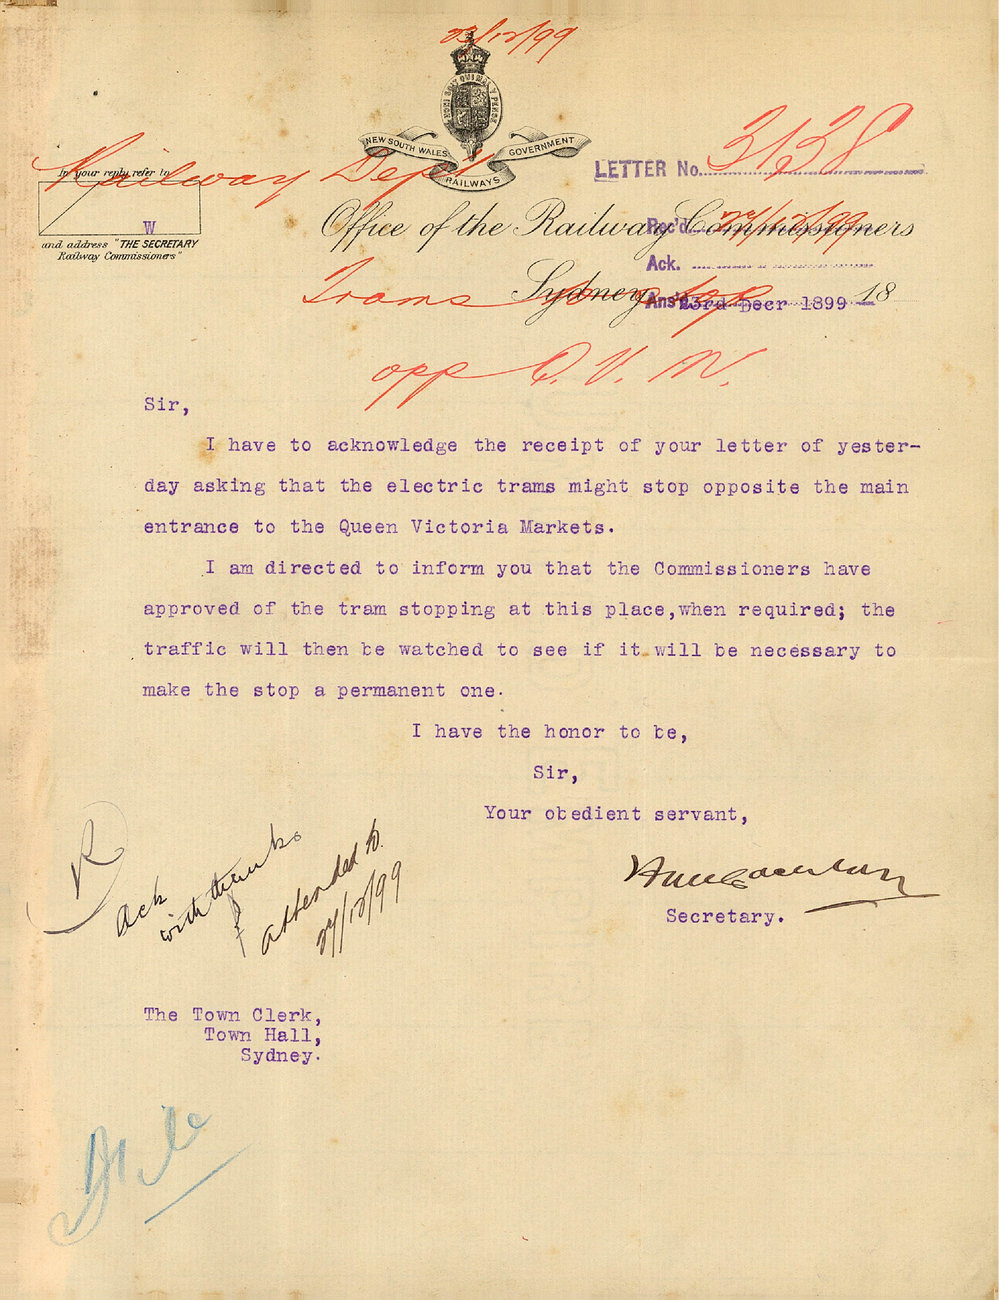 23/12/99
HONI SOIT QUI MAL Y PENSE
NEW SOUTH WALES GOVERNMENT
RAILWAYS
LETTER No. 3138
Railway Dept
In your reply refer to
W
and address "THE SECRETARY
Railway Commissioners"
Office of the Railway Commissioners
Rec'd 27/12/99
Ack.
Trams to stop
Sydney 18
Ans'd
23rd Decr 1899
opp Q. V. M.
Sir,
I have to acknowledge the receipt of your letter of yester-
day asking that the electric trams might stop opposite the main
entrance to the Queen Victoria Markets.
I am directed to inform you that the Commissioners have
approved of the tram stopping at this place,when required; the
traffic will then be watched to see if it will be necessary to
make the stop a permanent one.
I have the honor to be,
Sir,
Your obedient servant,
Secretary.
R
Ack
with thanks
attended to
27/12/99
The Town Clerk,
Town Hall,
Sydney.
File